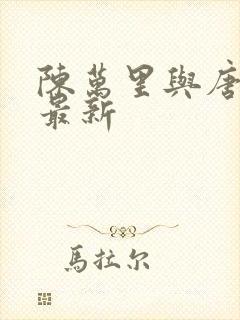 陳萬里與唐
最新
馬拉尔